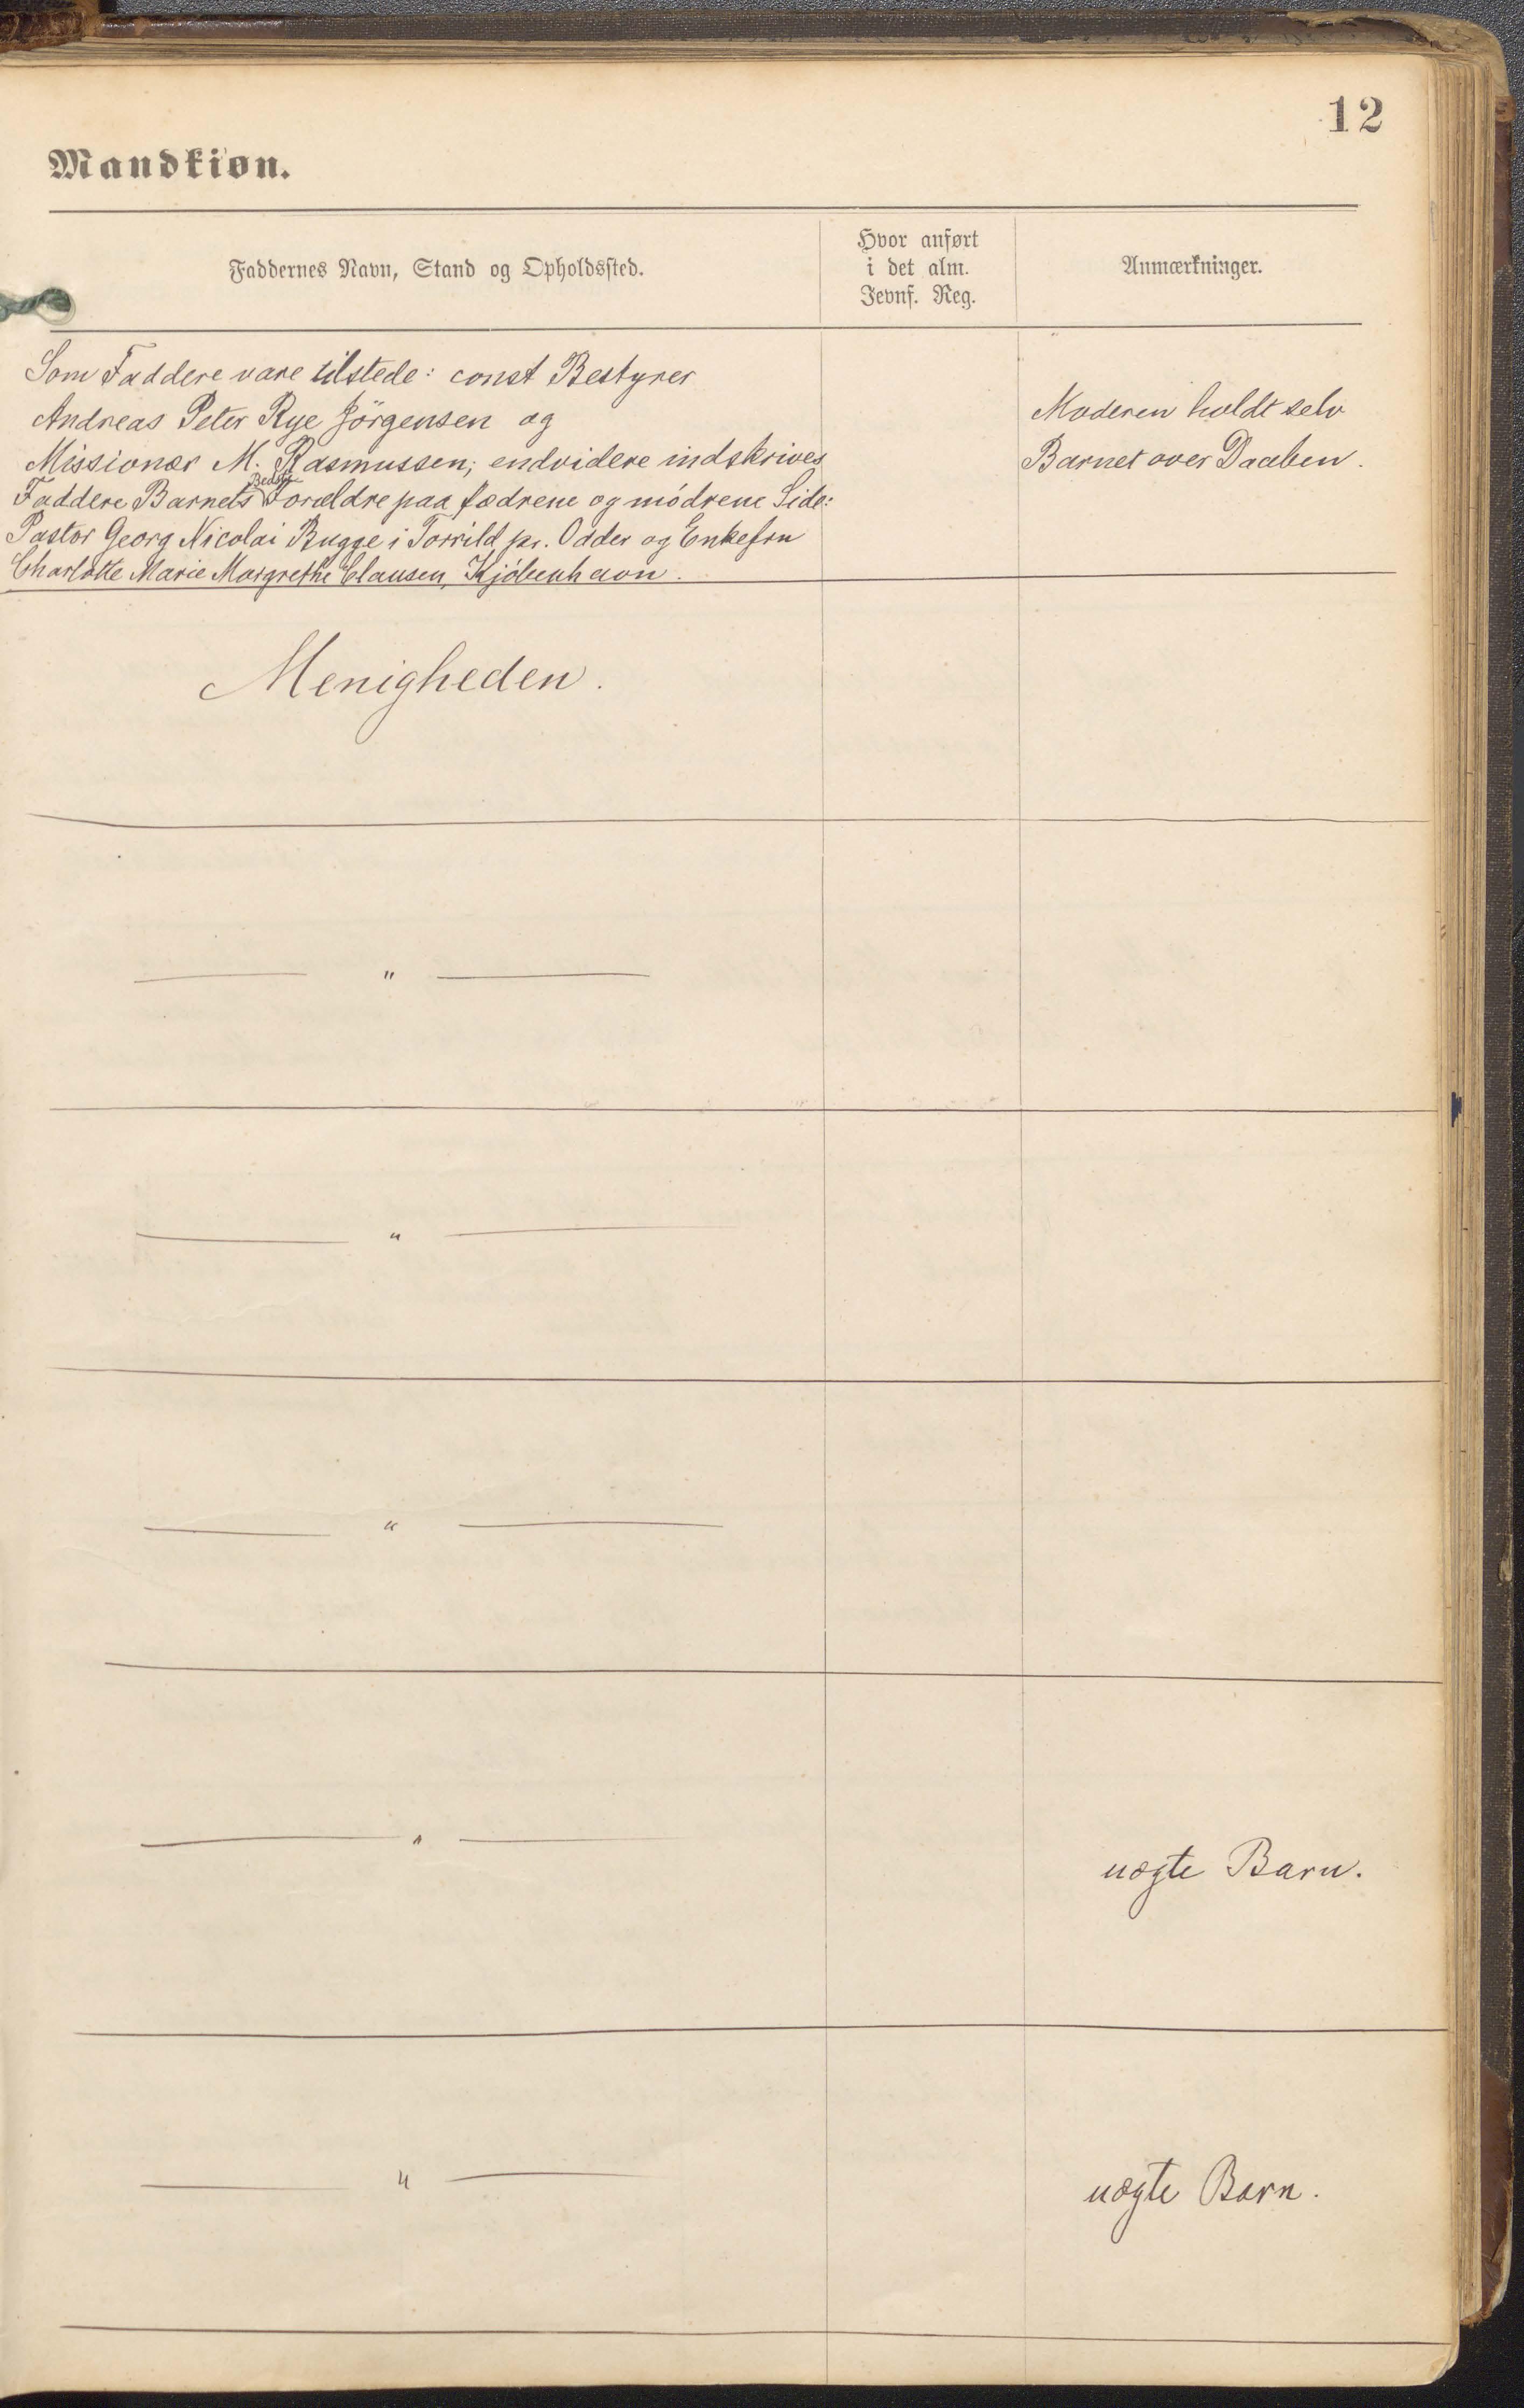 12
Mandkiøn.
Faddernes Navn, Stand og Opholdssted.
Hvor anført
i det alm.
Jevnf. Reg.
Anmærkninger.
Som Faddere vare tilstede: const Bestyrer
Andreas Peter Rye Jörgensen og
Missionær M. Rasmussen; endvidere indskrives
Bedste
Faddere Barnets Forældre paa fædrene og mödrene Side:
Pastor Georg Nicolai Bugge i Torrild pr. Odder og Enkefru
Charlotte Marie Margrethe Clausen, Kjöbenhavn.
Moderen holdt selv
Barnet over Daaben.
Menigheden.
— " —
— " —
— " —
— " —
uægte Barn.
— " —
uægte Barn.